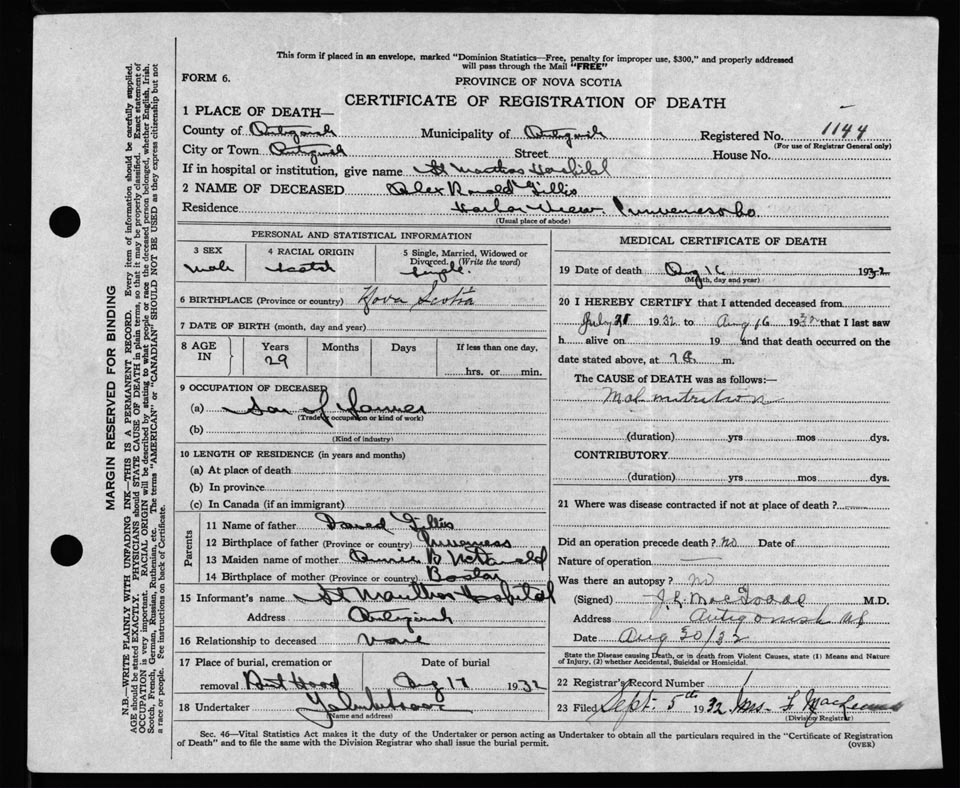 This form if placed in an envelope, marked "Dominion Statistics—Free, penalty for improper use, $300," and properly addressed
will pass through the Mail "FREE"
FORM 6.
PROVINCE OF NOVA SCOTIA
CERTIFICATE OF REGISTRATION OF DEATH
1 PLACE OF DEATH—
County of Antigonish Municipality of Antigonish Registered No. 1144
(For use of Registrar General only)
City or Town Antigonish Street House No.
If in hospital or institution, give name St Marthas Hospital
2 NAME OF DECEASED Alex Ronald Gillis
Residence Harbor View. Inverness Co.
(Usual place of abode)
PERSONAL AND STATISTICAL INFORMATION
3 SEX 4 RACIAL ORIGIN 5 Single, Married, Widowed or
Divorced. (Write the word)
male Scotch Single.
6 BIRTHPLACE (Province or country) Nova Scotia
7 DATE OF BIRTH (month, day and year)
8 AGE IN Years Months Days If less than one day,
29 hrs. or min.
9 OCCUPATION OF DECEASED
(a) Son of farmer
(Trade, occupation or kind of work)
(b)
(Kind of industry)
10 LENGTH OF RESIDENCE (in years and months)
(a) At place of death
(b) In province
(c) In Canada (if an immigrant)
Parents
11 Name of father Gillis
12 Birthplace of father (Province or country) Inverness
13 Maiden name of mother Annie B McDonald
14 Birthplace of mother (Province or country) Boston
15 Informant's name St Marthas Hospital
Address Antigonish
16 Relationship to deceased none
17 Place of burial, cremation or Date of burial
removal Port Hood Aug 17 1932
18 Undertaker
(Name and address)
MEDICAL CERTIFICATE OF DEATH
19 Date of death Aug 16 1932
(Month, day and year)
20 I HEREBY CERTIFY that I attended deceased from
July 21 1932 to Aug 16 1932 that I last saw
h alive on 19 and that death occurred on the
date stated above, at m.
The CAUSE of DEATH was as follows:—
Malnutrition
(duration) yrs mos dys.
CONTRIBUTORY
(duration) yrs mos dys.
21 Where was disease contracted if not at place of death?
Did an operation precede death? no Date of
Nature of operation —
Was there an autopsy? no
(Signed) J. L. MacIsaac M.D.
Address Antigonish NS
Date Aug 30/32
State the Disease causing Death, or in death from Violent Causes, state (1) Means and Nature
of Injury, (2) whether Accidental, Suicidal or Homicidal.
22 Registrar's Record Number
23 Filed Sept. 5th 1932
(Division Registrar)
Sec. 46—Vital Statistics Act makes it the duty of the Undertaker or person acting as Undertaker to obtain all the particulars required in the "Certificate of Registration
of Death" and to file the same with the Division Registrar who shall issue the burial permit. (OVER)
MARGIN RESERVED FOR BINDING
N.B.—WRITE PLAINLY WITH UNFADING INK—THIS IS A PERMANENT RECORD. Every item of information should be carefully supplied.
AGE should be stated EXACTLY. PHYSICIANS should STATE CAUSE OF DEATH in plain terms, so that it may be properly classified. Exact statement of
OCCUPATION is very important. RACIAL ORIGIN will be described by stating to what people or race the deceased person belonged, whether English, Irish,
Scotch, French, German, Russian, Ruthenian, etc. The terms "AMERICAN" or "CANADIAN" SHOULD NOT BE USED as they express citizenship but not
a race or people. See instructions on back of Certificate.